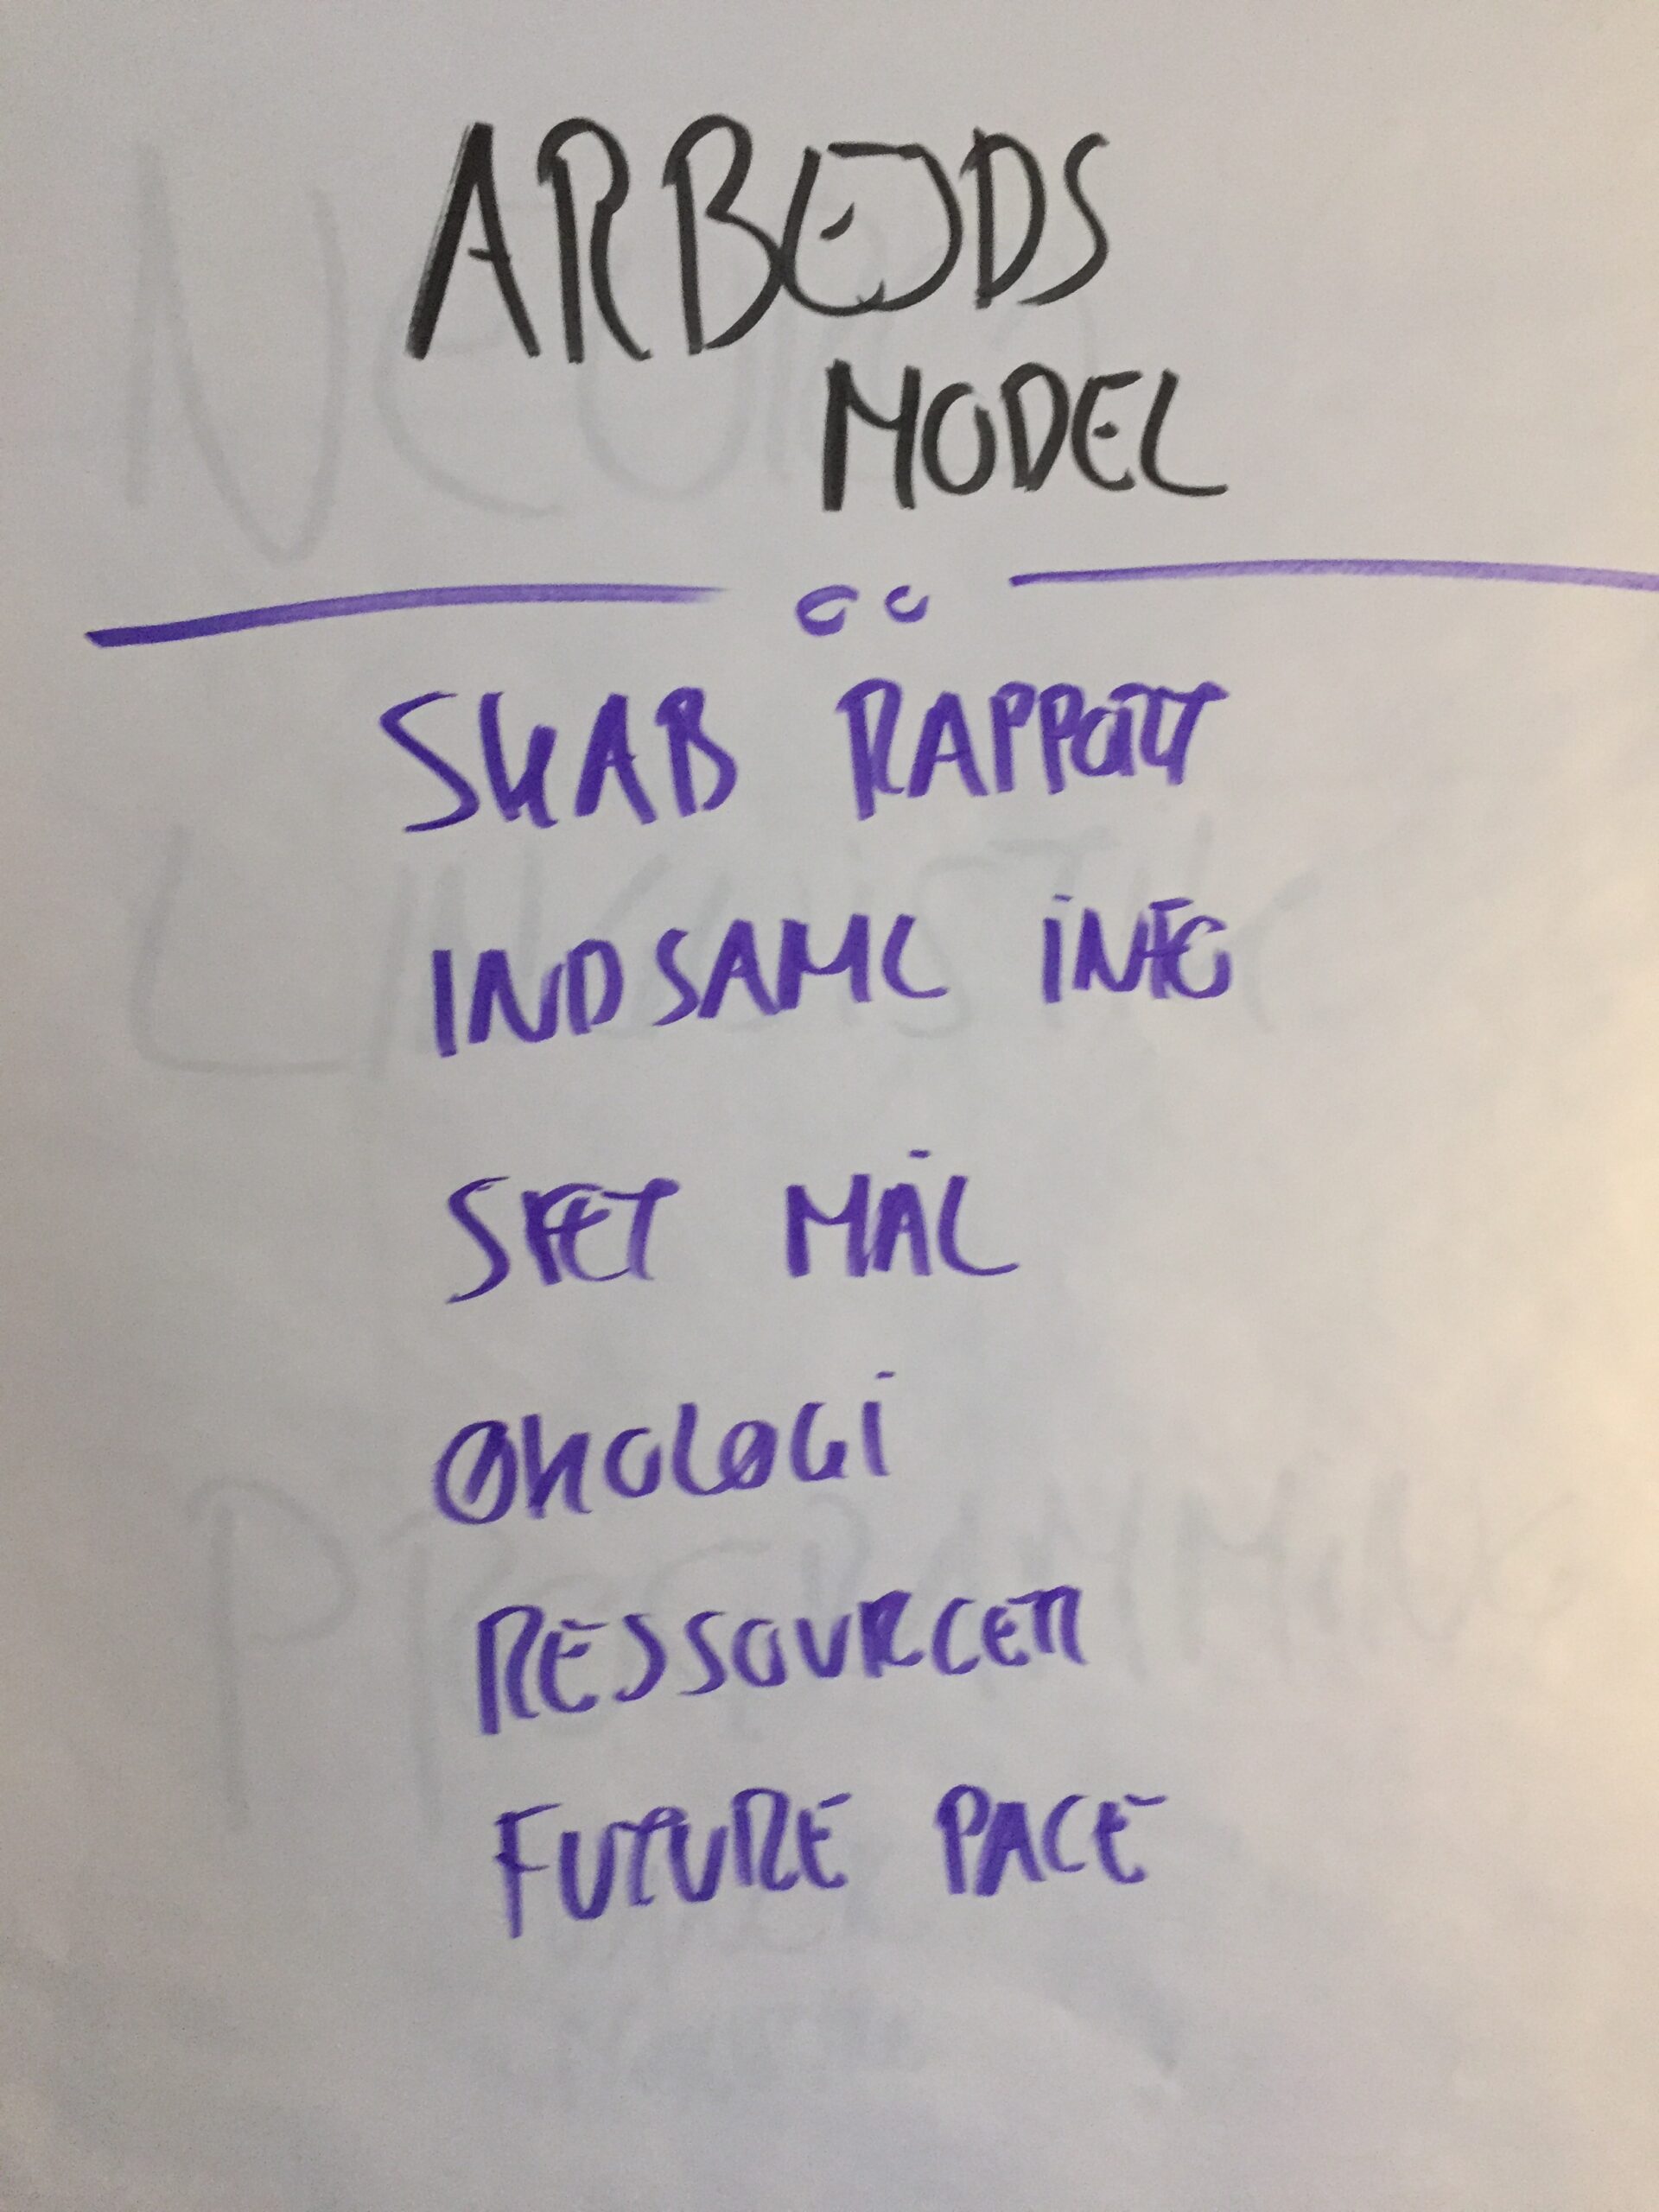 ARBEJDS
MODEL
SKAB RAPPORT
INDSAML INFO
SÆT MÅL
ØKOLOGI
RESSOURCER
FUTURE PACE
NEURO
LINGUISTIC
PROGRAMMING